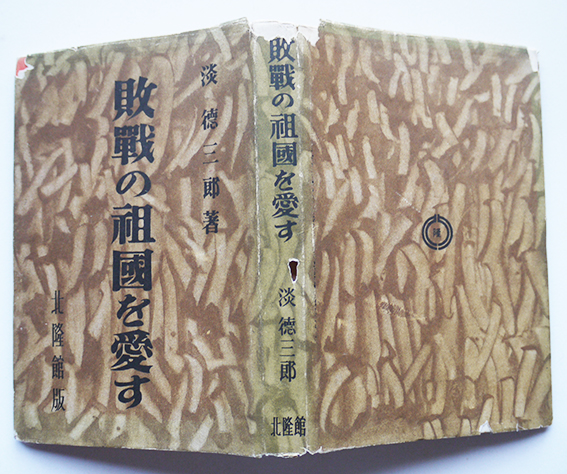 淡德三郎著
敗戰の祖國を愛す
北隆館版
敗戰の祖國を愛す
淡德三郎
北隆館
隆